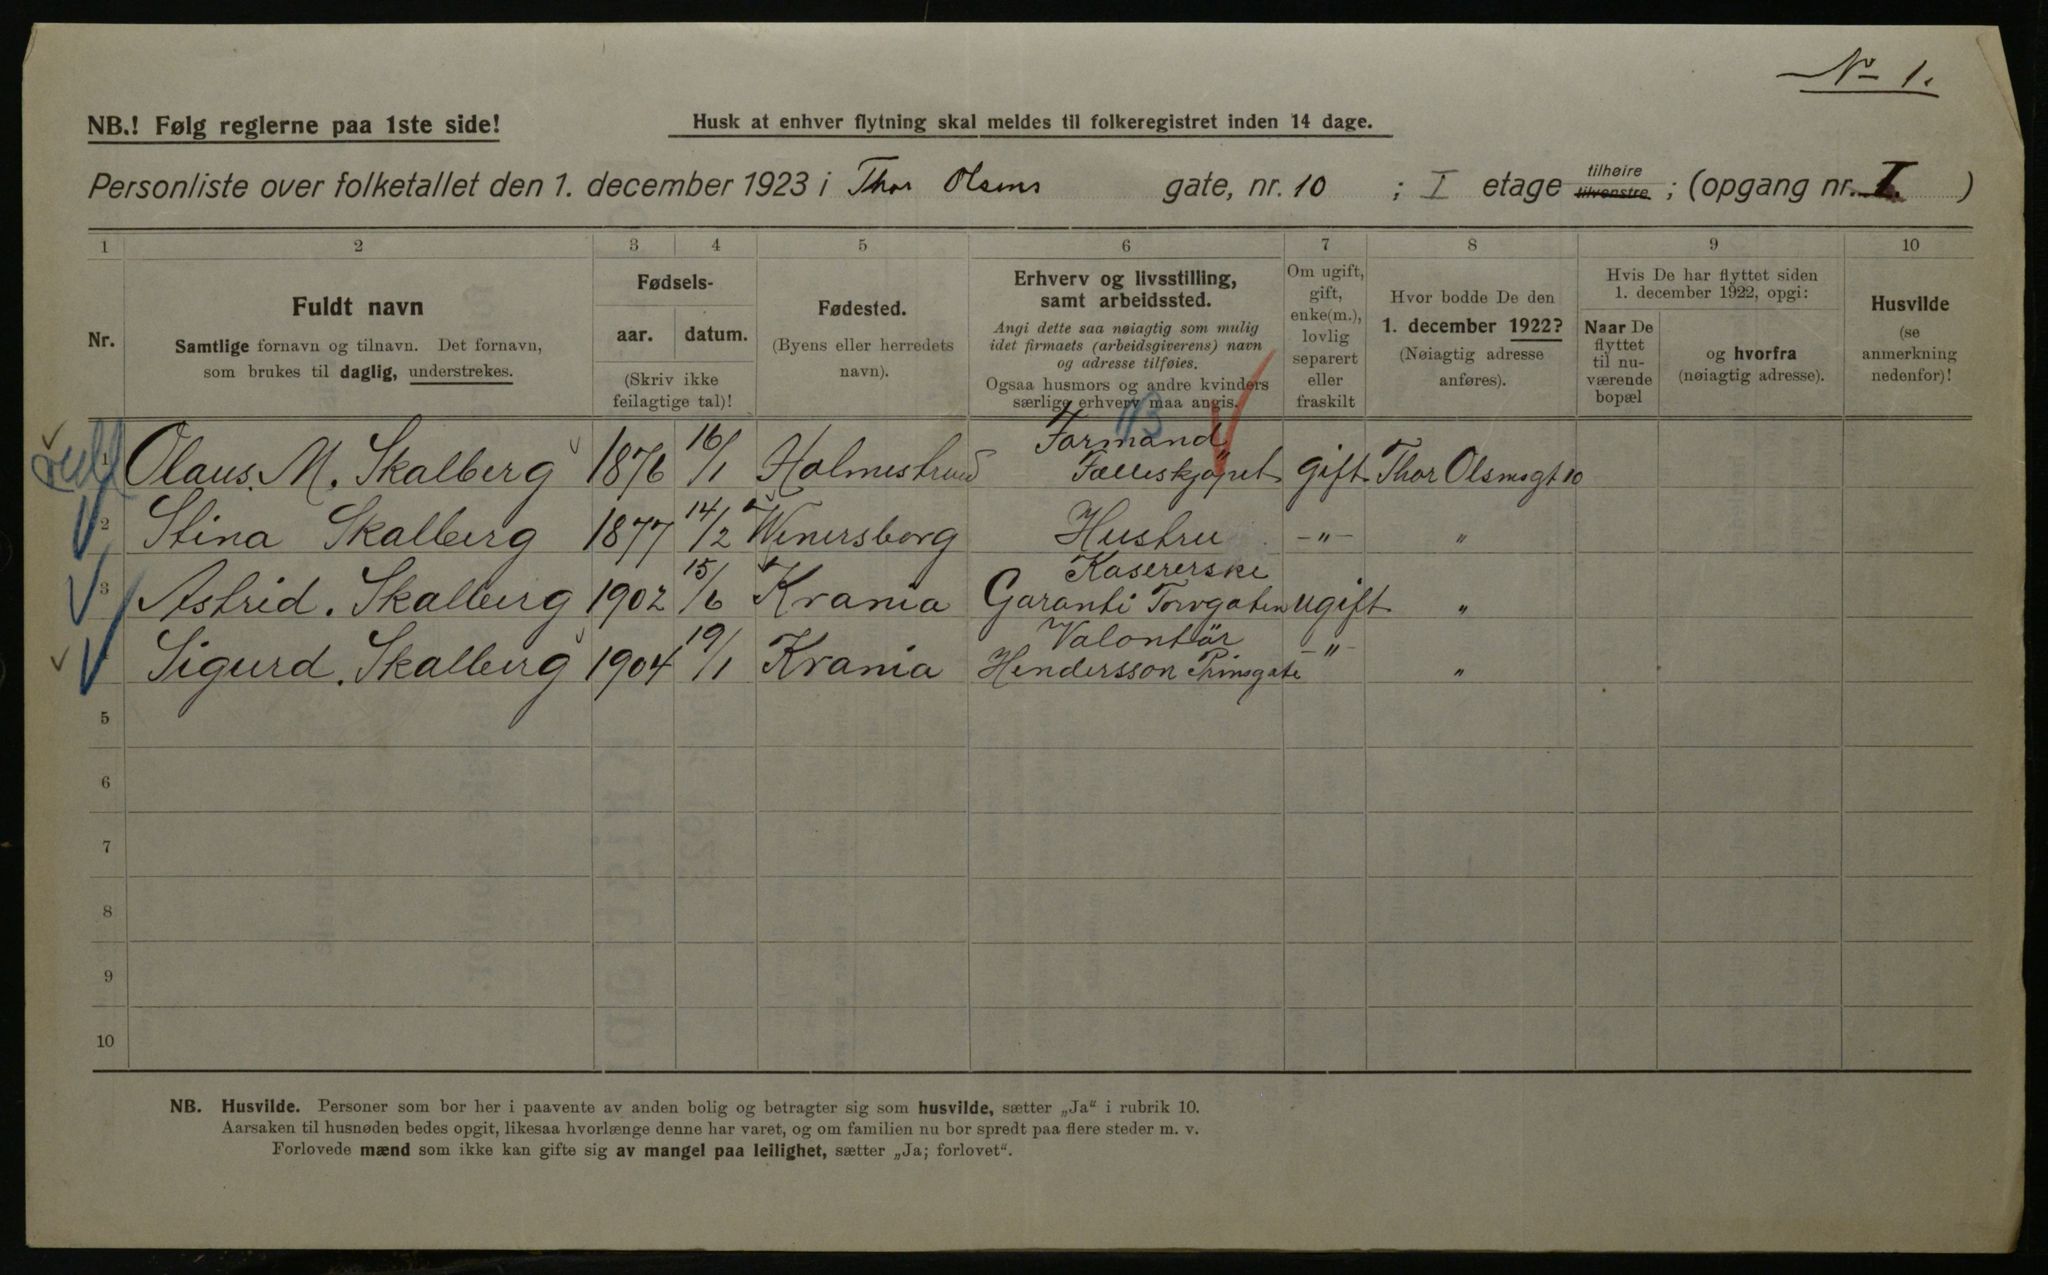 No 1.
NB.! Følg reglerne paa 1ste side!
Husk at enhver flytning skal meldes til folkeregistret inden 14 dage.
Personliste over folketallet den 1. december 1923 i Thor Olsens gate, nr. 10 ; I etage tilhøire tilvenstre ; (opgang nr. I. )
1 2 3 4 5 6 7 8 9 10
Nr.
Fuldt navn
Samtlige fornavn og tilnavn. Det fornavn,
som brukes til daglig, understrekes.
Fødsels-
aar. datum.
(Skriv ikke
feilagtige tal)!
Fødested.
(Byens eller herredets
navn).
Erhverv og livsstilling,
samt arbeidssted.
Angi dette saa nøiagtig som mulig
idet firmaets (arbeidsgiverens) navn
og adresse tilføies.
Ogsaa husmors og andre kvinders
særlige erhverv maa angis.
Om ugift,
gift,
enke(m.),
lovlig
separert
eller
fraskilt
Hvor bodde De den
1. december 1922?
(Nøiagtig adresse
anføres).
Hvis De har flyttet siden
1. december 1922, opgi:
Naar De
flyttet
til nu-
værende
bopæl
og hvorfra
(nøiagtig adresse).
Husvilde
(se
anmerkning
nedenfor)!
Formand
1 Olaus. M. Skalberg 1876 16/1 Holmestrand Fælleskjøpet gift Thor Olsensgt 10
2 Stina Skalberg 1877 14/2 Wenersborg Hustru -"- "
Kasererske
3 Astrid. Skalberg 1902 15/6 Krania Garanti Torvgaten ugift "
Valontär
Sigurd. Skalberg 1904 19/1 Krania Hendersson Prinsgate -"- "
5
6
7
8
9
10
NB. Husvilde. Personer som bor her i paavente av anden bolig og betragter sig som husvilde, sætter „Ja" i rubrik 10.
Aarsaken til husnøden bedes opgit, likesaa hvorlænge denne har varet, og om familien nu bor spredt paa flere steder m. v.
Forlovede mænd som ikke kan gifte sig av mangel paa leilighet, sætter „Ja; forlovet".